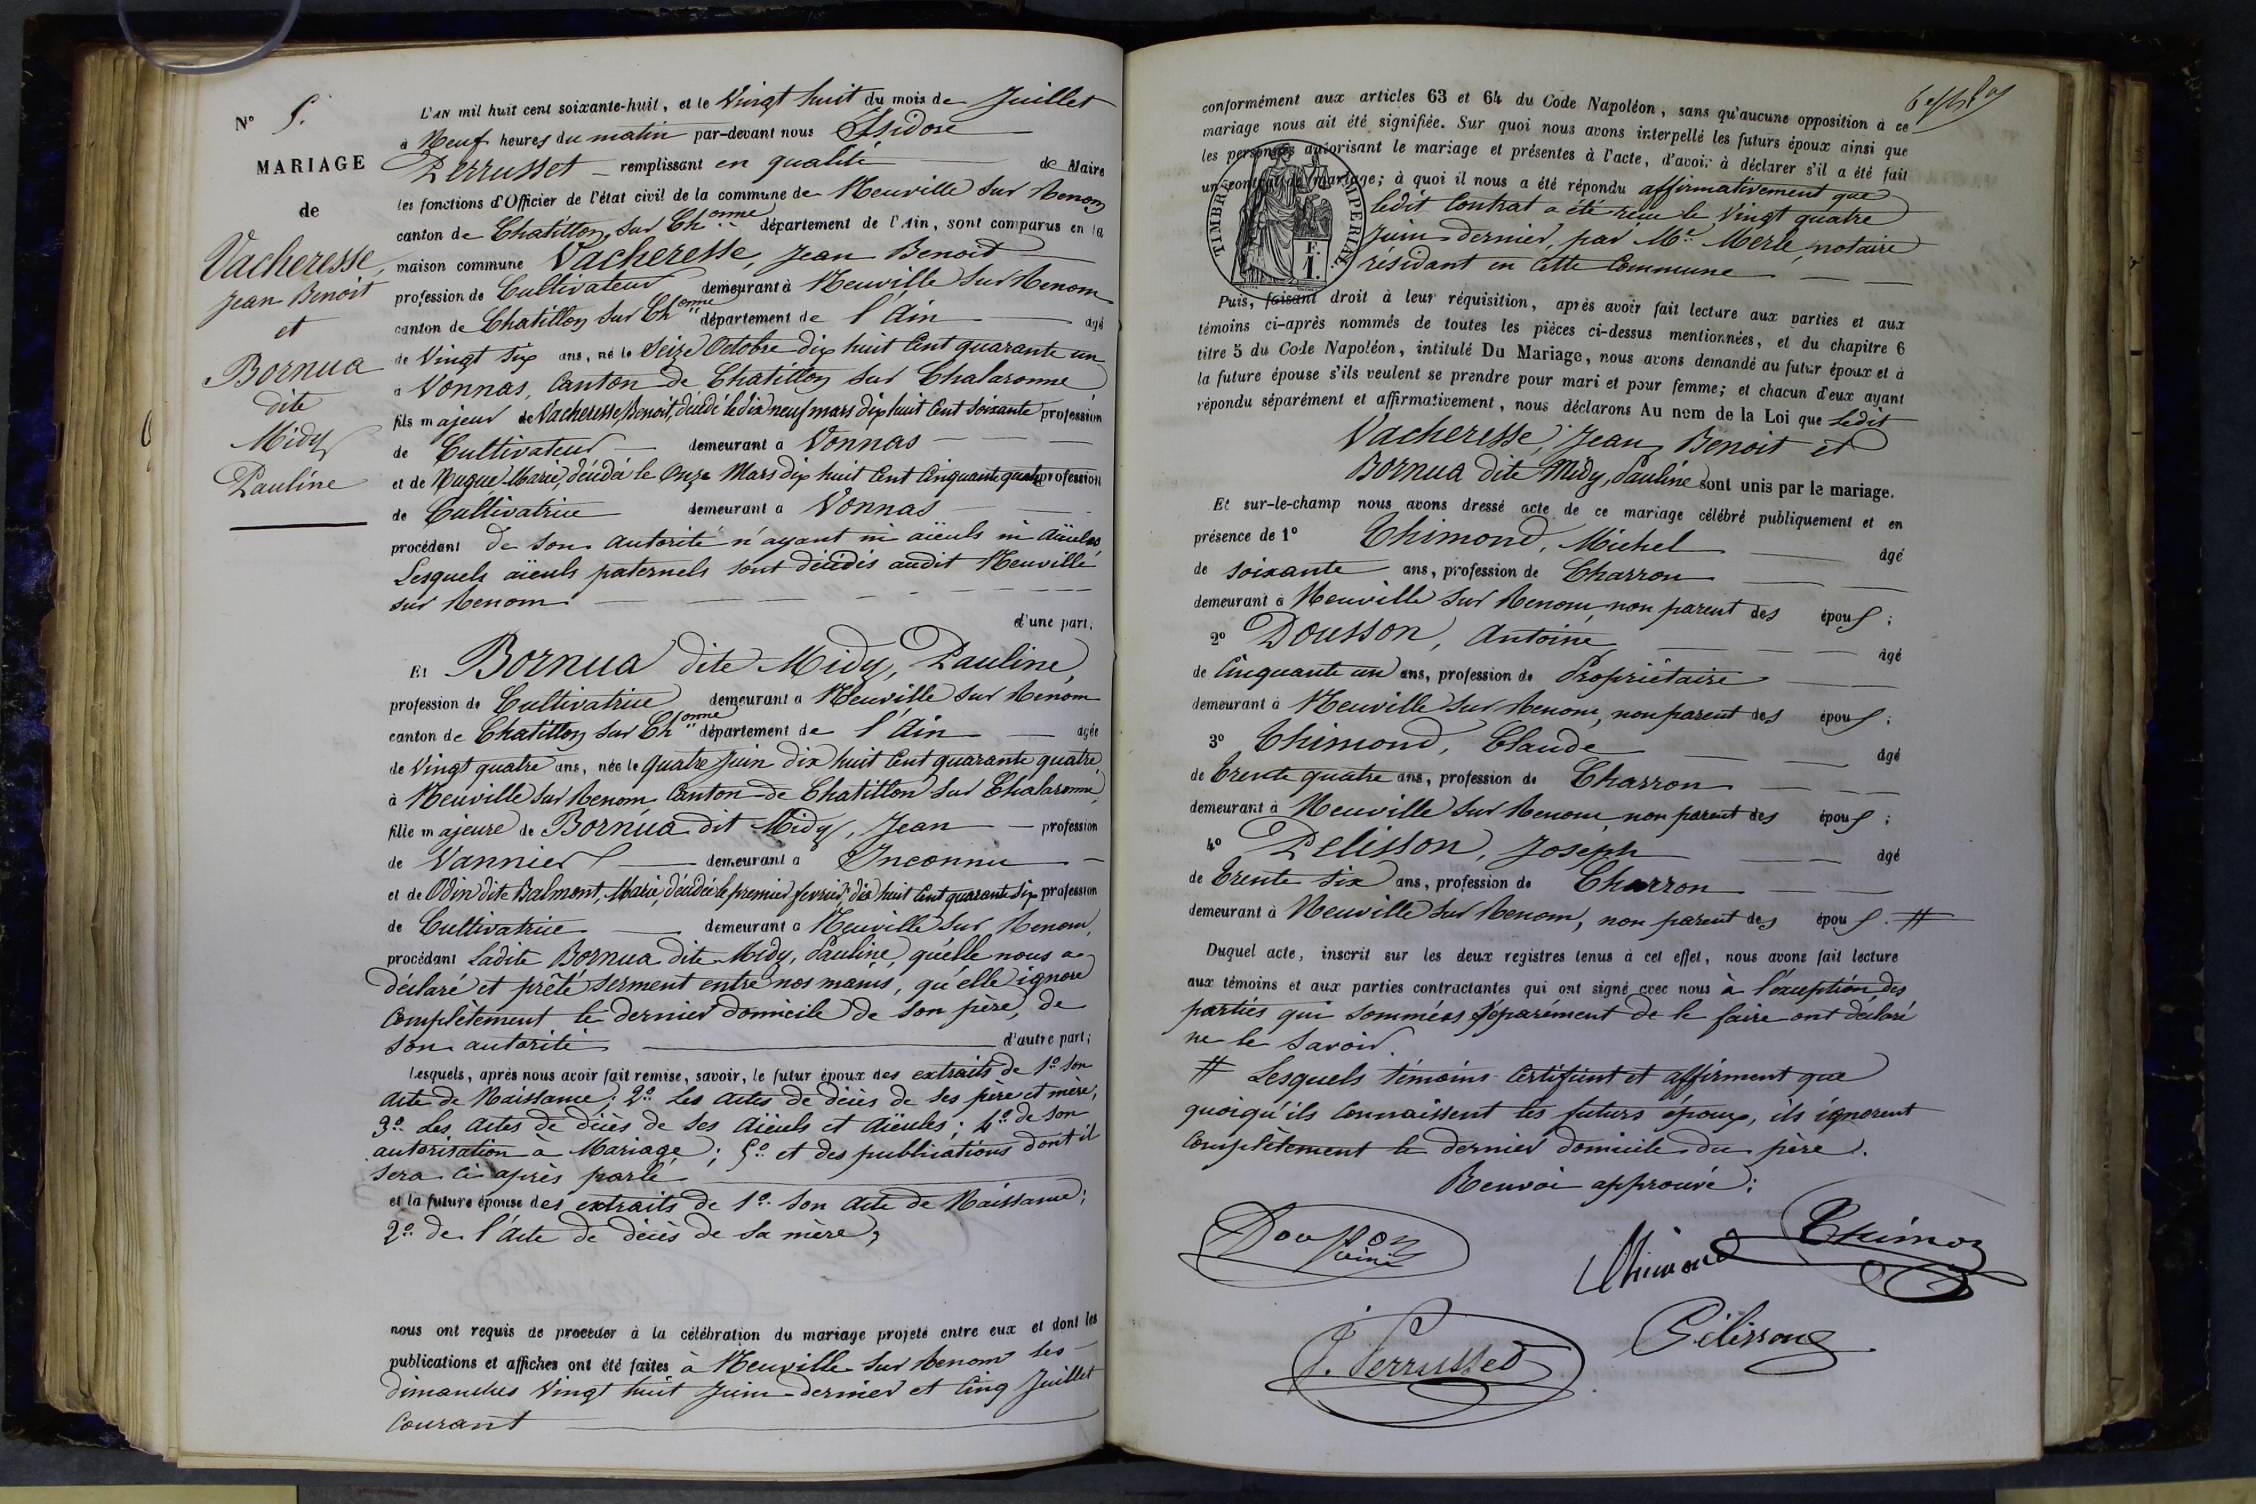 N° 5.
MARIAGE
de
Vacheresse,
Jean Benoit
et
Bornua
dite
Midy
Pauline
L'AN mil huit cent soixante-huit, et le Vingt huit du mois de Juillet
à Neuf heures du matin par-devant nous Isidore
Perrusset remplissant en qualité de Maire
les fonctions d'Officier de l'état civil de la commune de Neuville sur Renom
canton de Chatillon sur Chonne département de l'Ain, sont comparus en la
maison commune Vacheresse, Jean Benoit
profession de Cultivateur demeurant à Neuville sur Renom
canton de Chatillon sur Chonne département de l'Ain âgé
de Vingt six ans, né le Seize Octobre dix huit Cent quarante un
à Vonnas, Canton de Chatillon sur Chalaronne
fils majeur de Vacheresse, Benoit, décédé le dix neuf mars dix huit Cent soixante profession
de Cultivateur demeurant à Vonnas
et de Nugue Marie, décédée le Onze Mars dix huit Cent Cinquante quatre profession
de Cultivatrice demeurant à Vonnas
procédant de son autorité n'ayant ni aïeuls ni aïeules
Lesquels aïeuls paternels sont décédés audit Neuville
sur Renom
d'une part;
Et Bornua dite Midy, Pauline,
profession de Cultivatrice demeurant à Neuville sur Renom
canton de Chatillon sur Chonne département de l'Ain âgée
de Vingt quatre ans, née le quatre Juin dix huit Cent quarante quatre
à Neuville sur Renom, Canton de Chatillon sur Chalaronne,
fille majeure de Bornua dit Midy, Jean profession
de Vannier demeurant à Inconnu
et de Odin dite Balmont, Marie, décédée le premier fevrier dix huit Cent quarante six profession
de Cultivatrice demeurant à Neuville sur Renom,
procédant Ladite Bornua dite Midy, Pauline, qu'elle nous a
déclaré et prêté serment entre nos mains, qu'elle ignore
Complètement le dernier domicile de son père, de
son autorité d'autre part;
Lesquels, après nous avoir fait remise, savoir, le futur époux des extraits de 1° son
acte de Naissance; 2° Les actes de décès de ses père et mère;
3° Les actes de décès de ses aïeuls et aïeules; 4° de son
autorisation à Mariage; 5° et des publications dont il
sera ci après parlé
et la future épouse des extraits de 1° son acte de Naissance;
2° de l'acte de décès de sa mère;
nous ont requis de procéder à la célébration du mariage projeté entre eux et dont les
publications et affiches ont été faites à Neuville sur Renom les
dimanches Vingt huit Juin dernier et Cinq Juillet
Courant
conformément aux articles 63 et 64 du Code Napoléon, sans qu'aucune opposition à ce
mariage nous ait été signifiée. Sur quoi nous avons interpellé les futurs époux ainsi que
les personnes autorisant le mariage et présentes à l'acte, d'avoir à déclarer s'il a été fait
un contrat de mariage; à quoi il nous a été répondu affirmativement que
ledit Contrat a été reçu le Vingt quatre
Juin dernier, par Me Merle, notaire
résidant en cette Commune
TIMBRE IMPERIAL
F.
1.
Puis, faisant droit à leur réquisition, après avoir fait lecture aux parties et aux
témoins ci-après nommés de toutes les pièces ci-dessus mentionnées, et du chapitre 6
titre 5 du Code Napoléon, intitulé Du Mariage, nous avons demandé au futur époux et à
la future épouse s'ils veulent se prendre pour mari et pour femme; et chacun d'eux ayant
répondu séparément et affirmativement, nous déclarons Au nom de la Loi que Ledit
Vacheresse, Jean Benoit et
Bornua dite Midy, Pauline sont unis par le mariage.
Et sur-le-champ nous avons dressé acte de ce mariage célébré publiquement et en
présence de 1° Thimond, Michel âgé
de soixante ans, profession de Charron
demeurant à Neuville sur Renom, non parent des époux;
2° Dousson, Antoine âgé
de Cinquante un ans, profession de Propriétaire
demeurant à Neuville sur Renom, non parent des époux;
3° Thimond, Claude âgé
de trente quatre ans, profession de Charron
demeurant à Neuville sur Renom, non parent des époux;
4° Pelisson, Joseph âgé
de trente six ans, profession de Charron
demeurant à Neuville sur Renom, non parent des époux. #
Duquel acte, inscrit sur les deux registres tenus à cet effet, nous avons fait lecture
aux témoins et aux parties contractantes qui ont signé avec nous à l'exception des
parties qui sommées séparément de le faire ont déclaré
ne le savoir.
# Lesquels témoins certifient et affirment que
quoiqu'ils connaissent les futurs époux, ils ignorent
Complètement le dernier domicile du père.
Renvoi approuvé:
Dousson
Thimond
Thimon
J. Perrusset
Pélisson